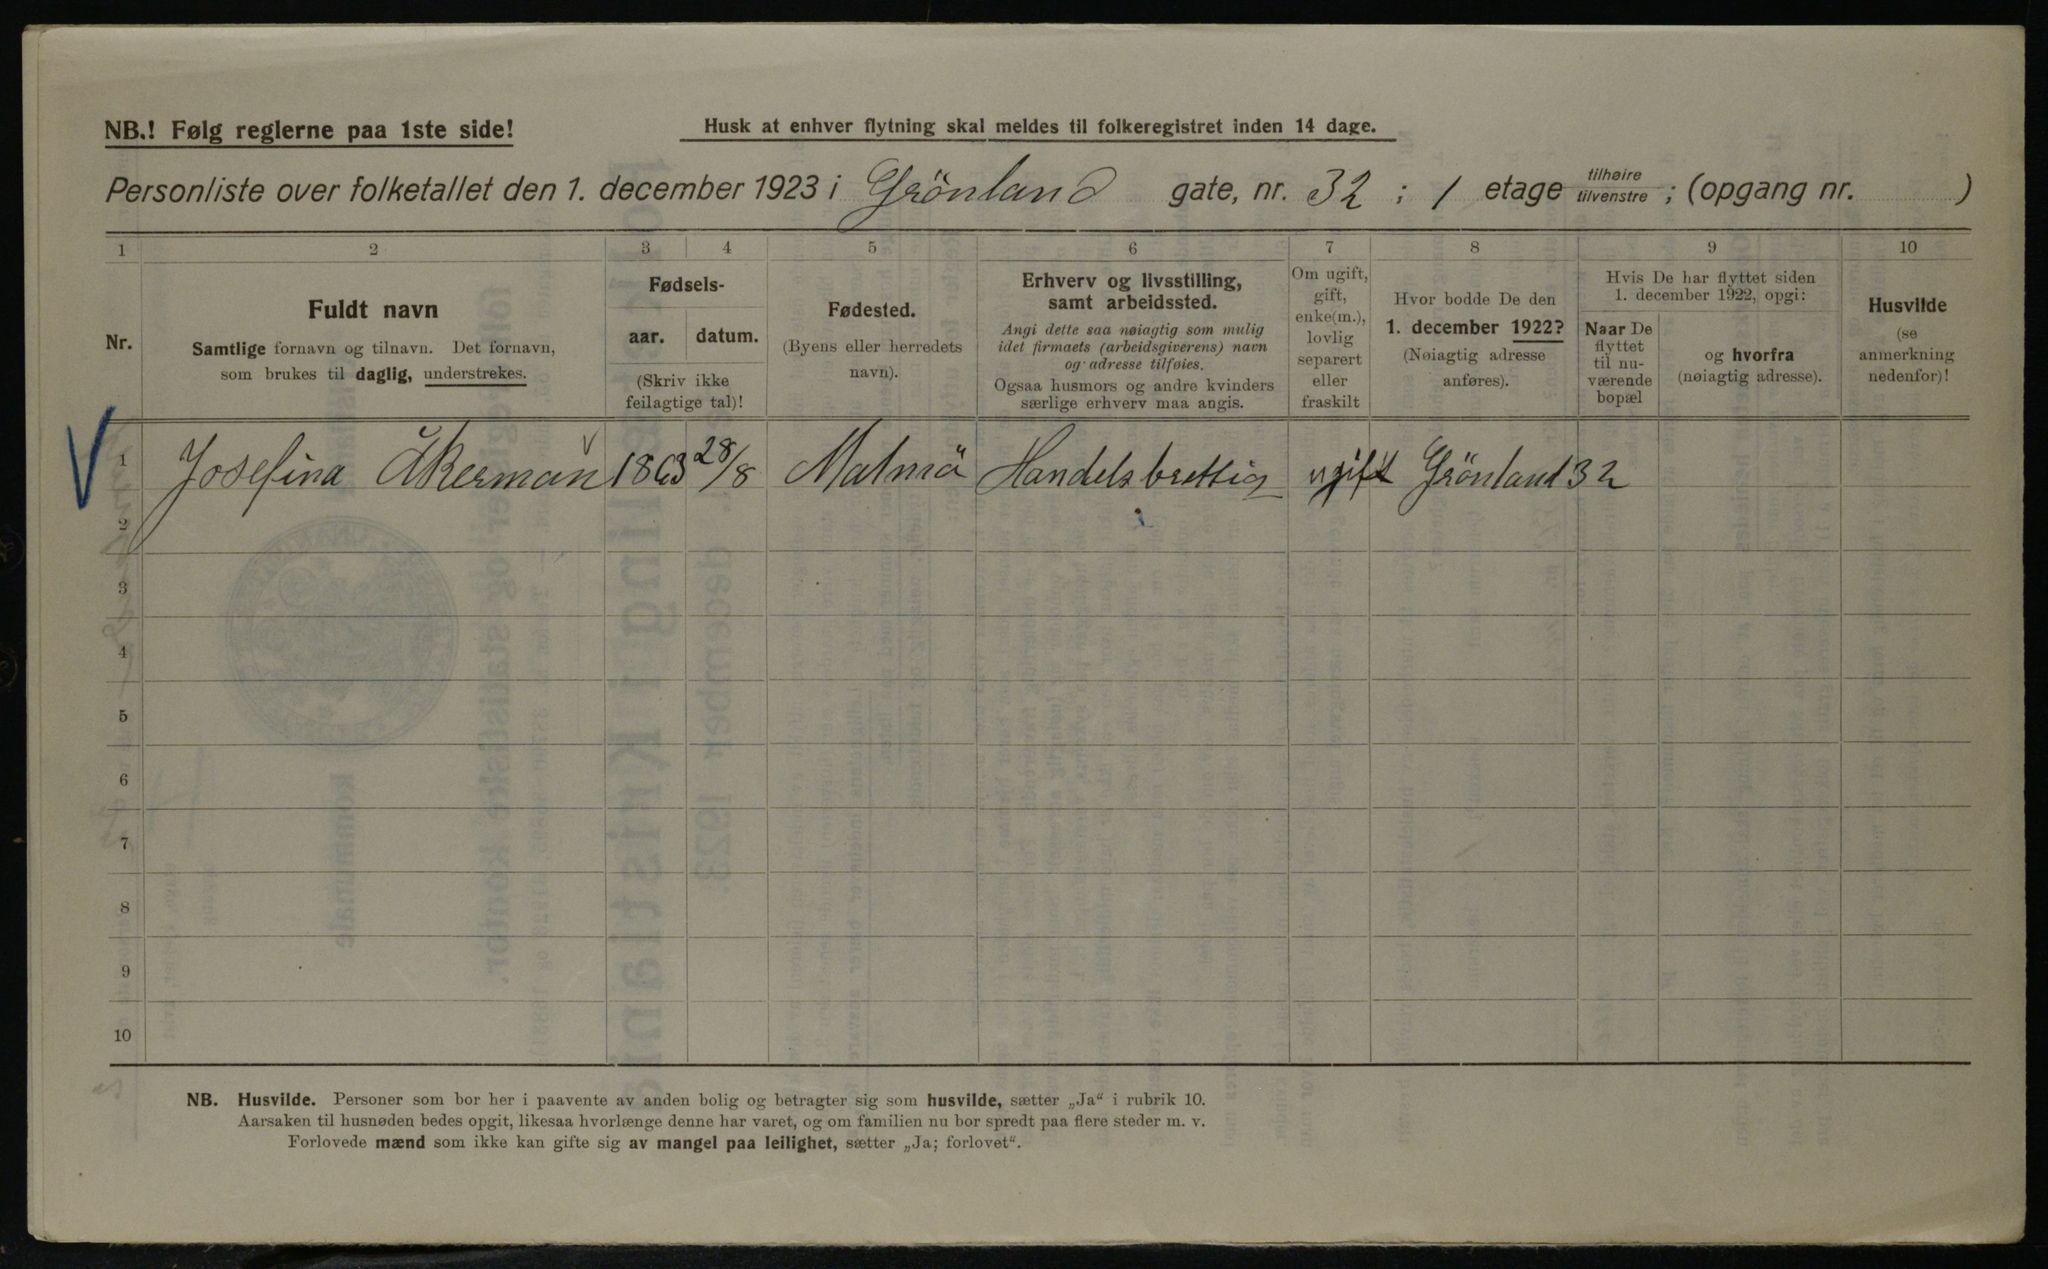 NB.! Følg reglerne paa 1ste side!
Husk at enhver flytning skal meldes til folkeregistret inden 14 dage.
Personliste over folketallet den 1. december 1923 i Grönland gate, nr. 32 ; 1 etage tilhøire tilvenstre ; (opgang nr. )
1 2 3 4 5 6 7 8 9 10
Nr.
Fuldt navn
Samtlige fornavn og tilnavn. Det fornavn,
som brukes til daglig, understrekes.
Fødsels-
aar. datum.
(Skriv ikke
feilagtige tal)!
Fødested.
(Byens eller herredets
navn).
Erhverv og livsstilling,
samt arbeidssted.
Angi dette saa nøiagtig som mulig
idet firmaets (arbeidsgiverens) navn
og adresse tilføies.
Ogsaa husmors og andre kvinders
særlige erhverv maa angis.
Om ugift,
gift,
enke(m.),
lovlig
separert
eller
fraskilt
Hvor bodde De den
1. december 1922?
(Nøiagtig adresse
anføres).
Hvis De har flyttet siden
1. december 1922, opgi:
Naar De
flyttet
til nu-
værende
bopæl
og hvorfra
(nøiagtig adresse).
Husvilde
(se
anmerkning
nedenfor)!
1 Josefina Åkerman 1863 28/8 Malmö Handelsbrettig ugift Grönland 32
2
3
4
5
6
7
8
9
10
NB. Husvilde. Personer som bor her i paavente av anden bolig og betragter sig som husvilde, sætter „Ja“ i rubrik 10.
Aarsaken til husnøden bedes opgit, likesaa hvorlænge denne har varet, og om familien nu bor spredt paa flere steder m. v.
Forlovede mænd som ikke kan gifte sig av mangel paa leilighet, sætter „Ja; forlovet“.